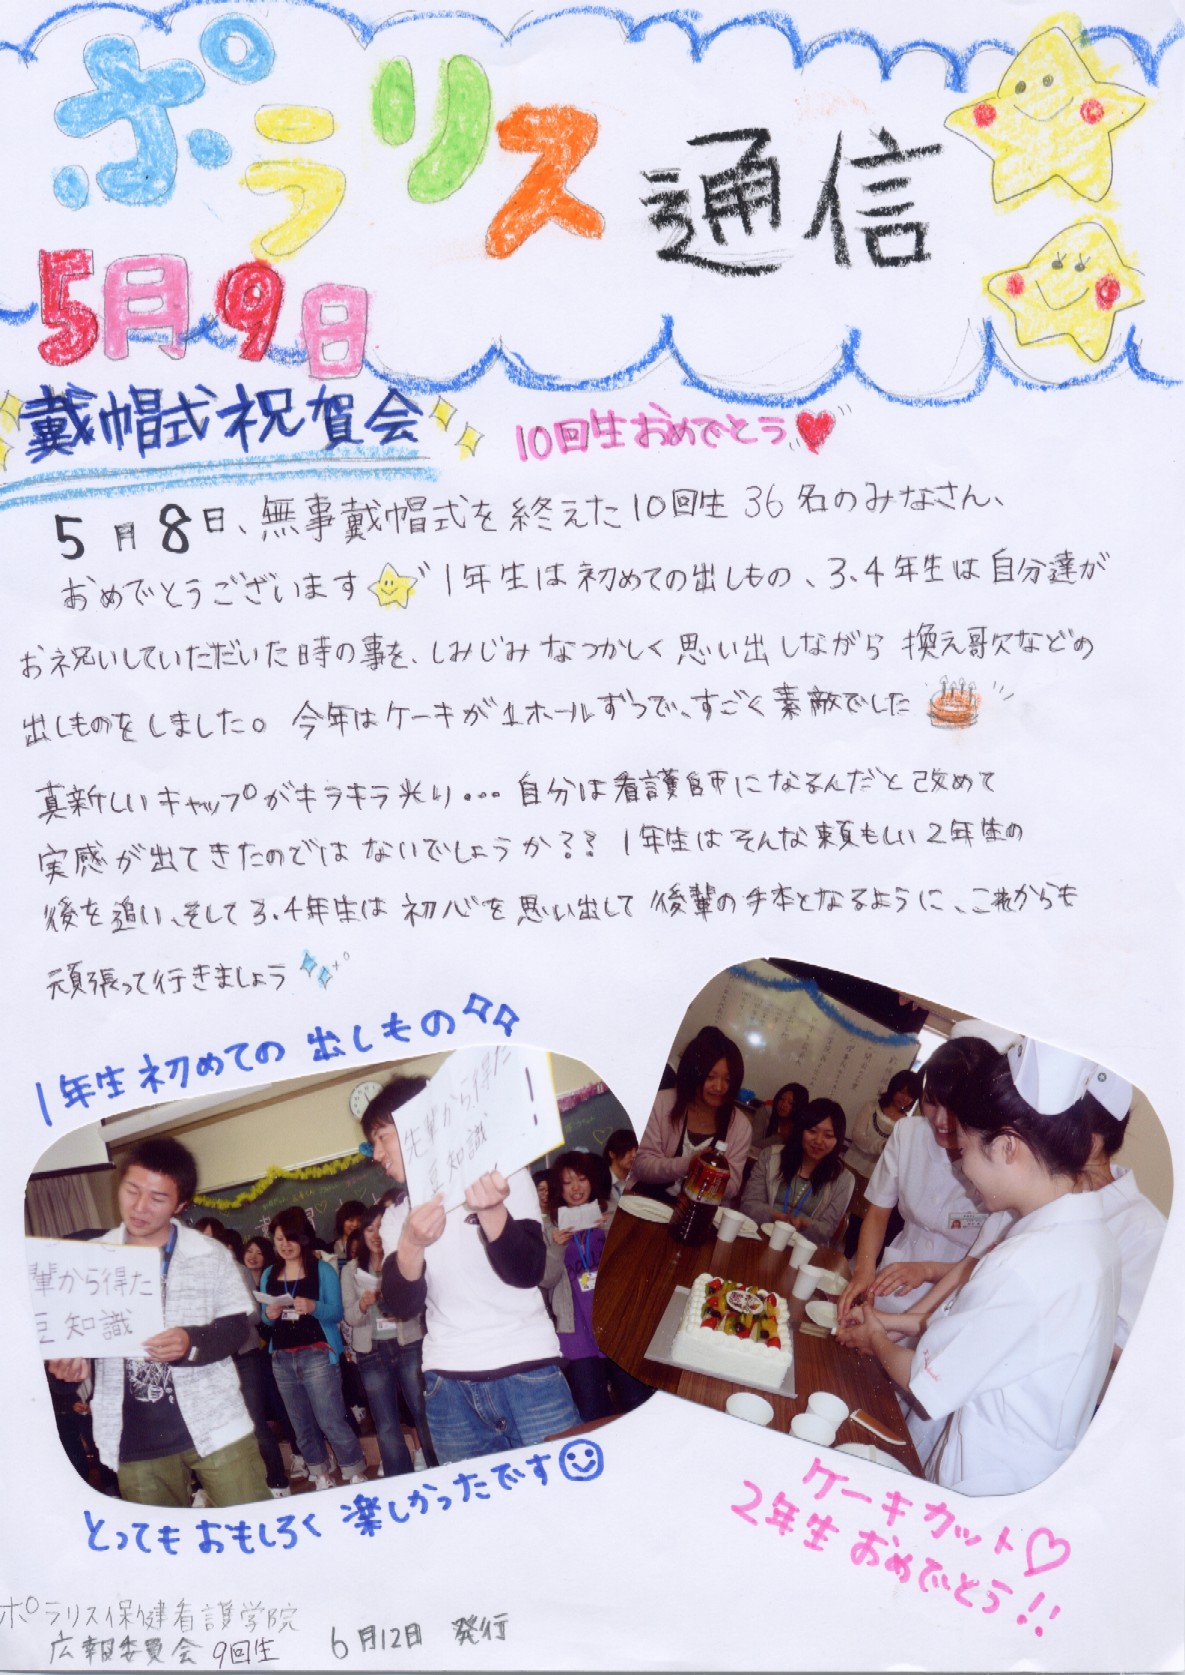 ポラリス通信
5月9日
戴帽式祝賀会
10回生おめでとう
5月8日、無事戴帽式を終えた10回生36名のみなさん、
おめでとうございます 1年生は初めての出しもの、3、4年生は自分達が
お祝いしていただいた時の事を、しみじみなつかしく思い出しながら換え歌などの
出しものをしました。今年はケーキが1ホールずつで、すごく素敵でした
真新しいキャップがキラキラ光り...自分は看護師になるんだと改めて
実感が出てきたのではないでしょうか??1年生はそんな頼もしい2年生の
後を追い、そして3、4年生は初心を思い出して後輩の手本となるように、これからも
頑張って行きましょう
1年生初めての出しもの
先輩から得た
豆知識
!
輩から得た
豆知識
とってもおもしろく楽しかったです
ケーキカット♡
2年生おめでとう!!
ポラリス保健看護学院
広報委員会 9回生
6月12日 発行